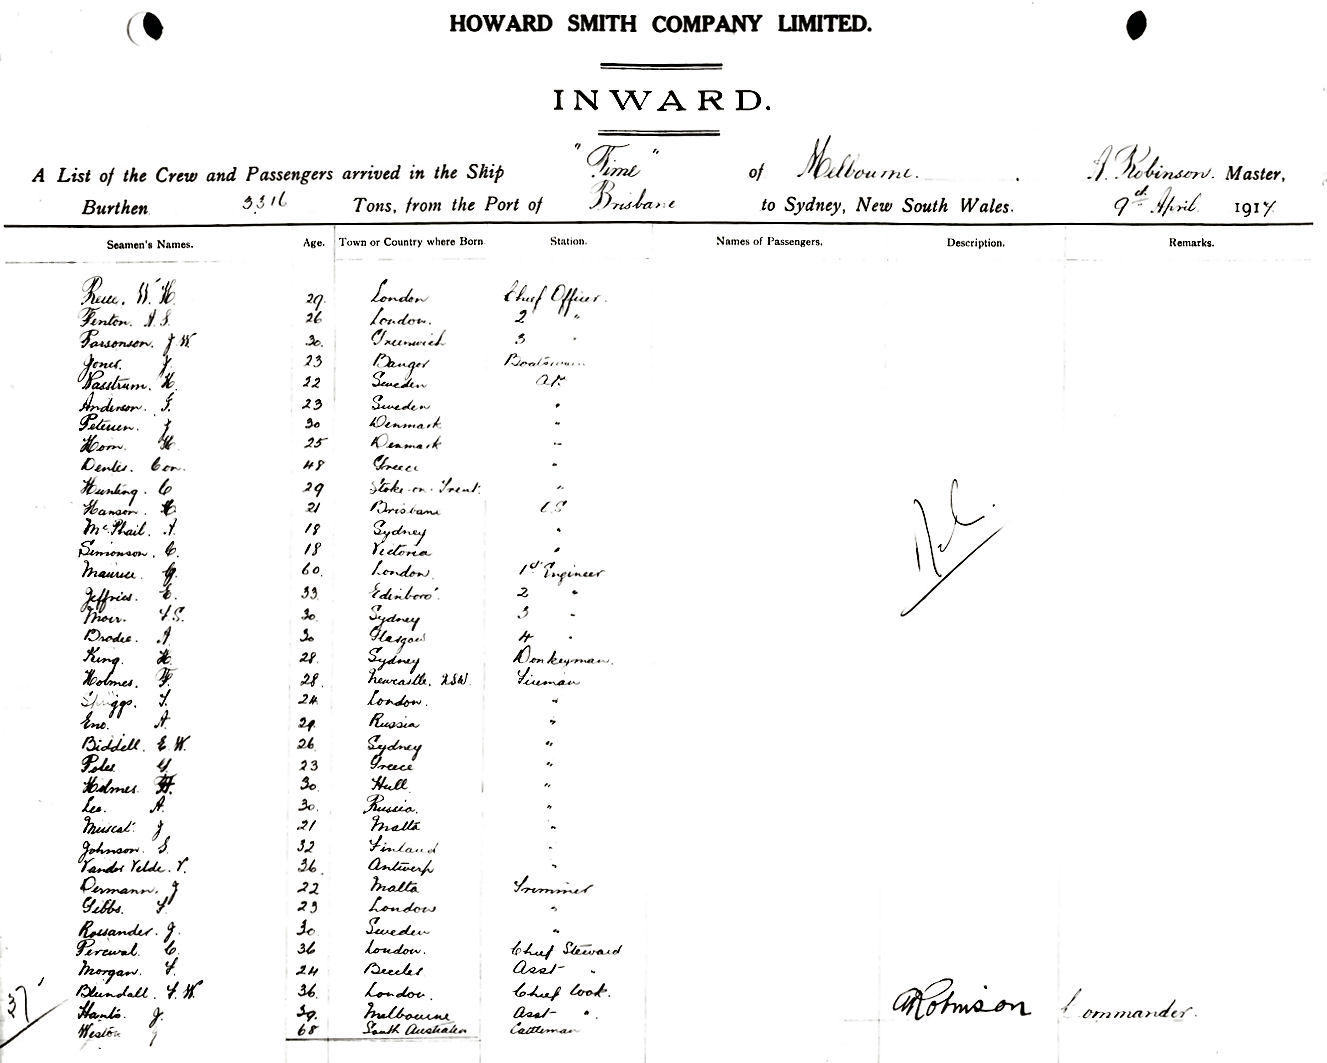 HOWARD SMITH COMPANY LIMITED.
INWARD.
A List of the Crew and Passengers arrived in the Ship "Time" of Melbourne. A. Robinson. Master,
Burthen 3316 Tons, from the Port of Brisbane to Sydney, New South Wales. 9th April 1917
Seamen's Names. Age. Town or Country where Born Station. Names of Passengers. Description. Remarks.
W. H. 29 London Chief Officer.
Fenton. A. S. 26 London. 2 "
Parsonson. J. W 30. Greenwich 3 "
Jones. J. 23 Bangor Boatswain
H. 22 Sweden AB
Anderson. G. 23 Sweden "
Petersen. J 30 Denmark "
Horn. H. 25 Denmark "
Con. 48 Greece "
Hunting. C 29 Stoke-on-Trent. "
Hanson. H. 21 Brisbane O.S
McPhail. A. 18 Sydney "
Simonson. C. 18 Victoria "
Maurice G. 60. London. 1st Engineer
Jeffries. E. 33 Edinboro'. 2 "
Moir. J. S. 30. Sydney 3 "
Brodie. A 30 Glasgow 4 "
King. H. 28. Sydney Donkeyman.
Holmes. F. 28. Newcastle. NSW. Fireman
Spriggs. 24 London. "
Eno. A. 29. Russia "
Biddell. E. W. 26. Sydney "
23 Greece "
Holmes. H. 30. Hull. "
Leo. A. 30. Russia. "
Muscat. J 21 Malta "
Johnson. S. 32 Finland "
Vander Velde. V. 36. Antwerp "
Dermann. J 22 Malta Trimmer
Gibbs. 23 London "
Rossander. J. 30. Sweden "
Percival. C. 36 London. Chief Steward
Morgan. 24 Beccles Asst "
37 Blundall. W. 36. London. Chief Cook.
J. 39. Melbourne Asst " A Robinson Commander.
Weston J 68 South Australia Cattleman